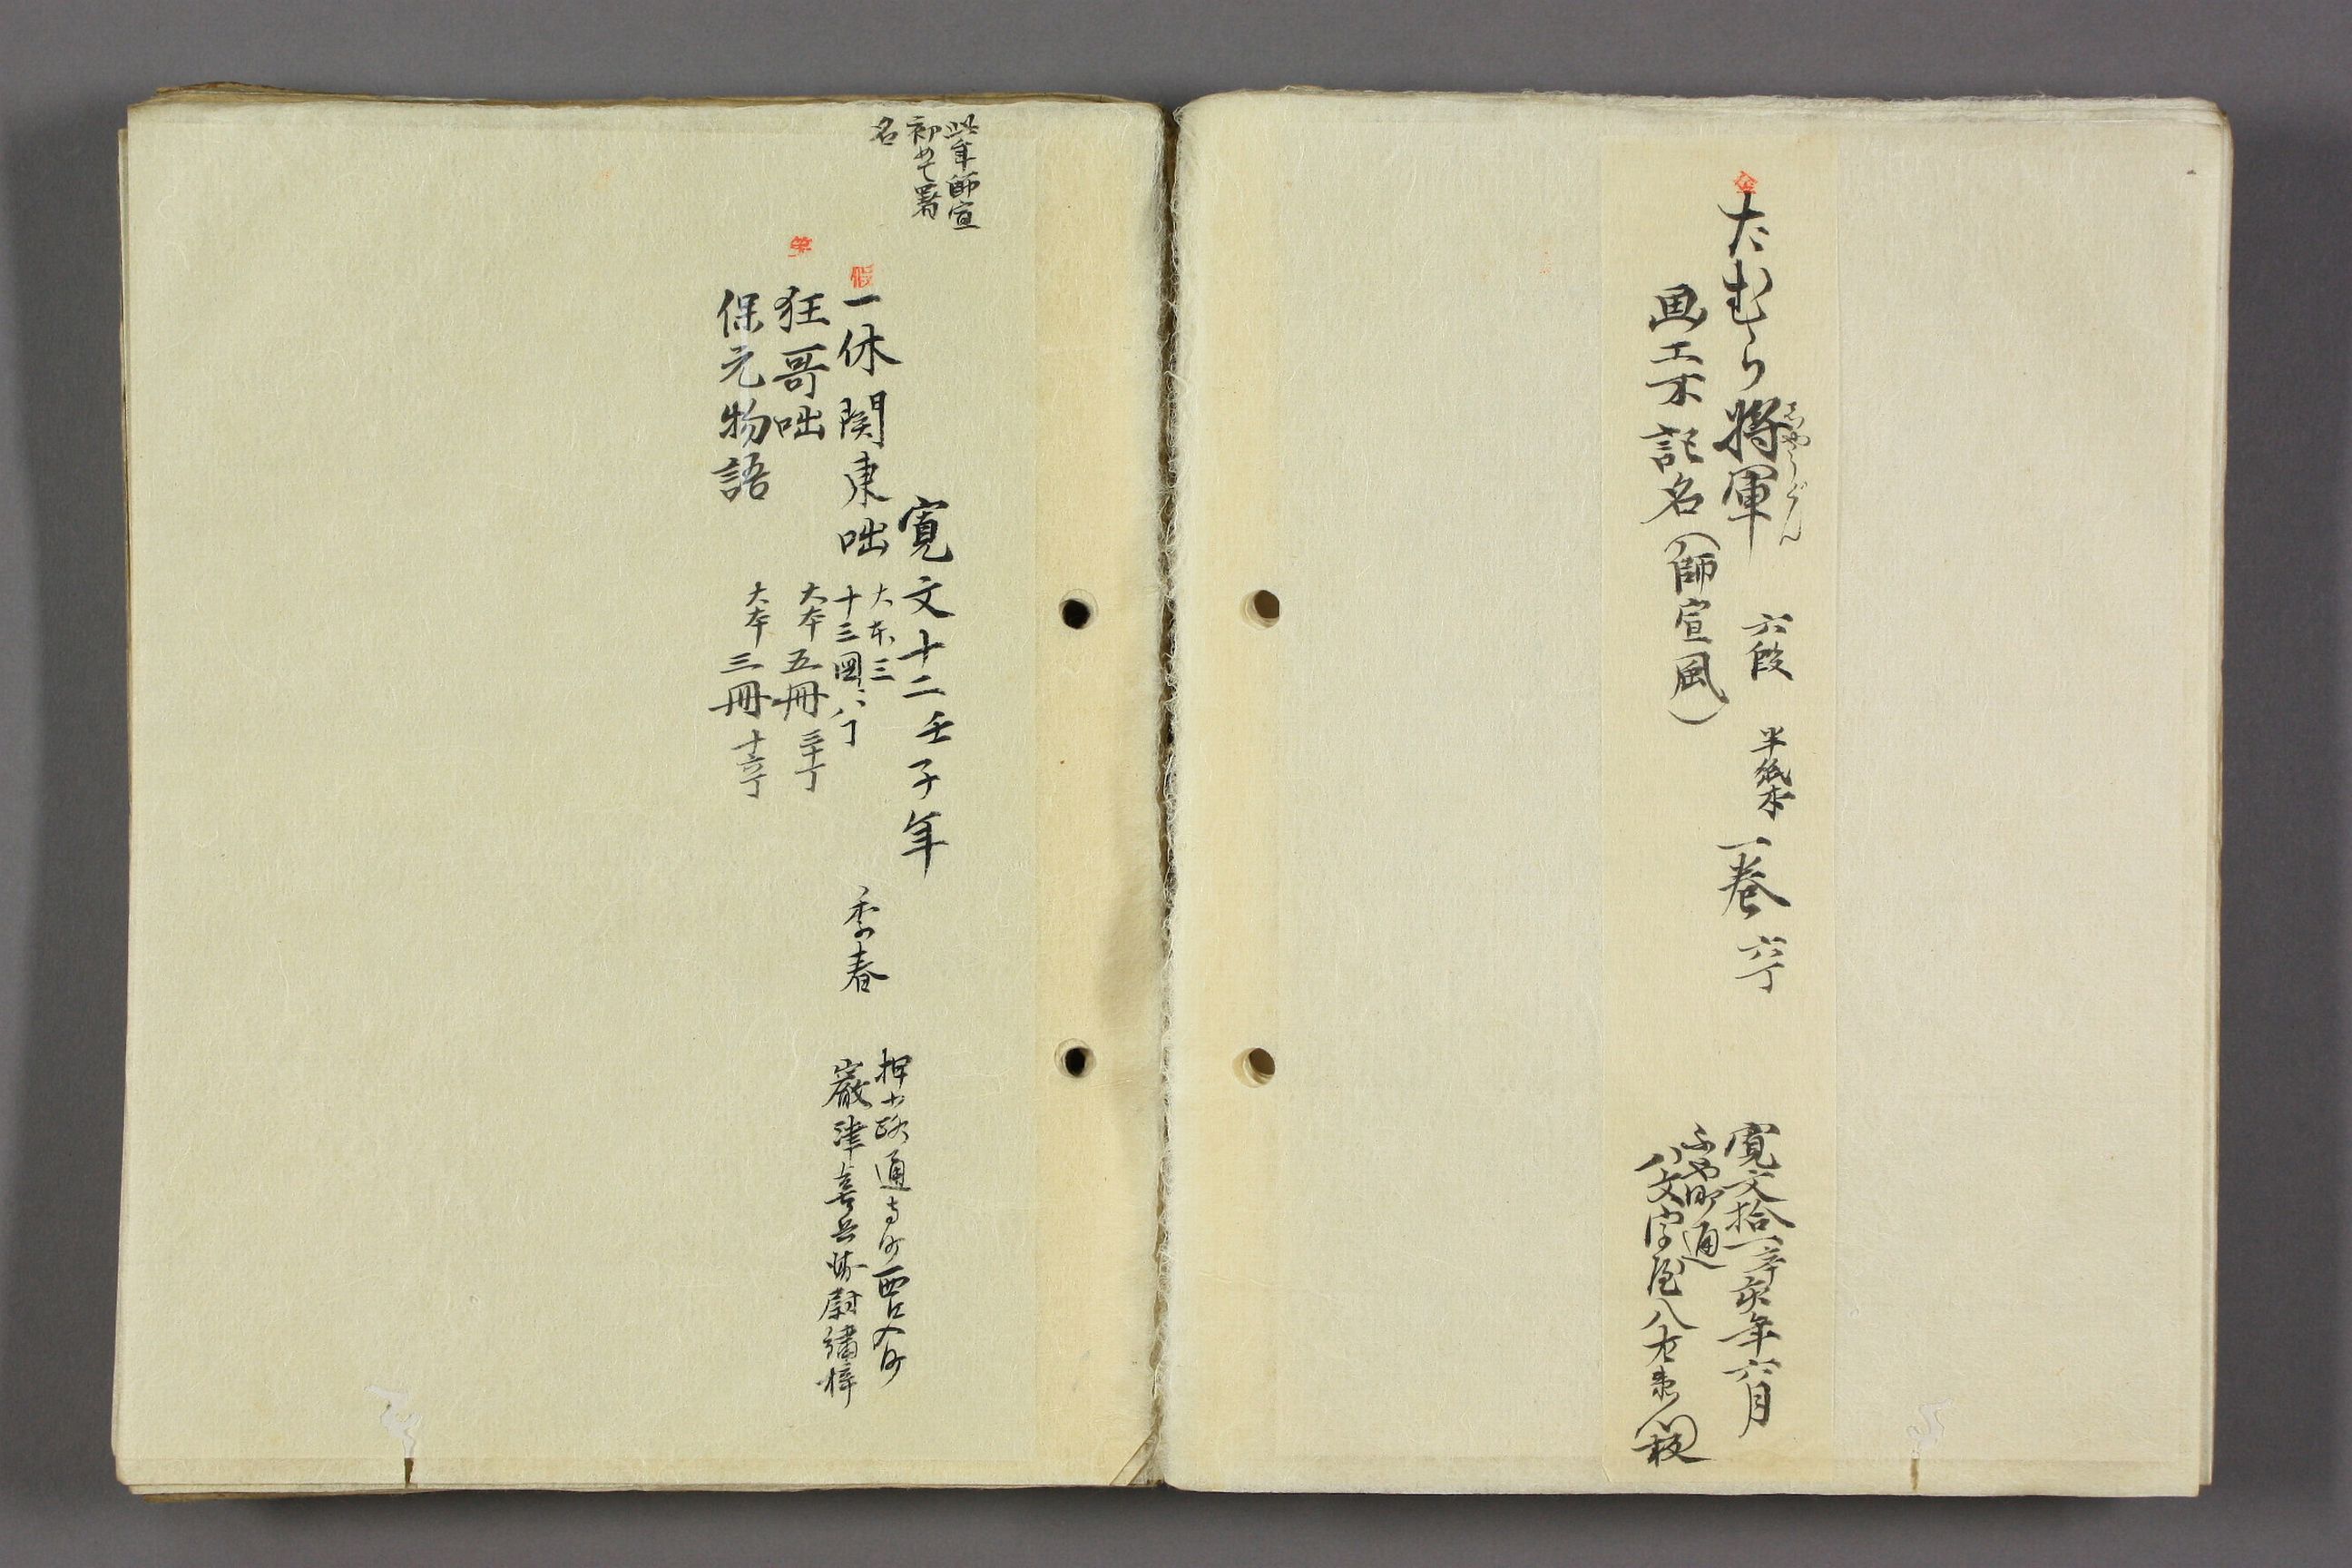 たむら将軍 六段 半紙本 一巻 六丁
しやうぐん
画工不記名(師宣風)
寛文拾一辛亥年六月
ふや町通
八文字屋八左衛門板
此年師宣
初めて署
名
寛文十二壬子年
一休関東咄 大本三 季春
十三図 八丁
押小路通寺町西口入町
巌津喜兵衛尉繡梓
狂哥咄 大本五冊
保元物語 大本三冊